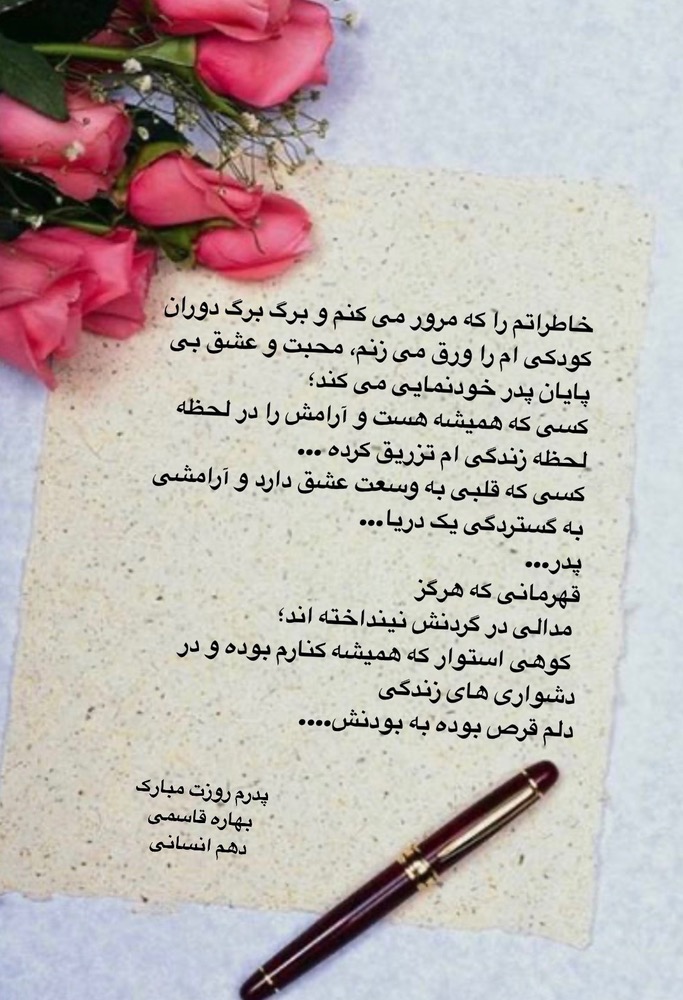 خاطراتم را که مرور می کنم و برگ برگ دوران
کودکی ام را ورق می زنم، محبت و عشق بی
پایان پدر خودنمایی می کند؛
کسی که همیشه هست و آرامش را در لحظه
لحظه زندگی ام تزریق کرده ...
کسی که قلبی به وسعت عشق دارد و آرامشی
به گستردگی یک دریا...
پدر...
قهرمانی که هرگز
مدالی در گردنش نینداخته اند؛
کوهی استوار که همیشه کنارم بوده و در
دشواری های زندگی
دلم قرص بوده به بودنش....
پدرم روزت مبارک
بهاره قاسمی
دهم انسانی